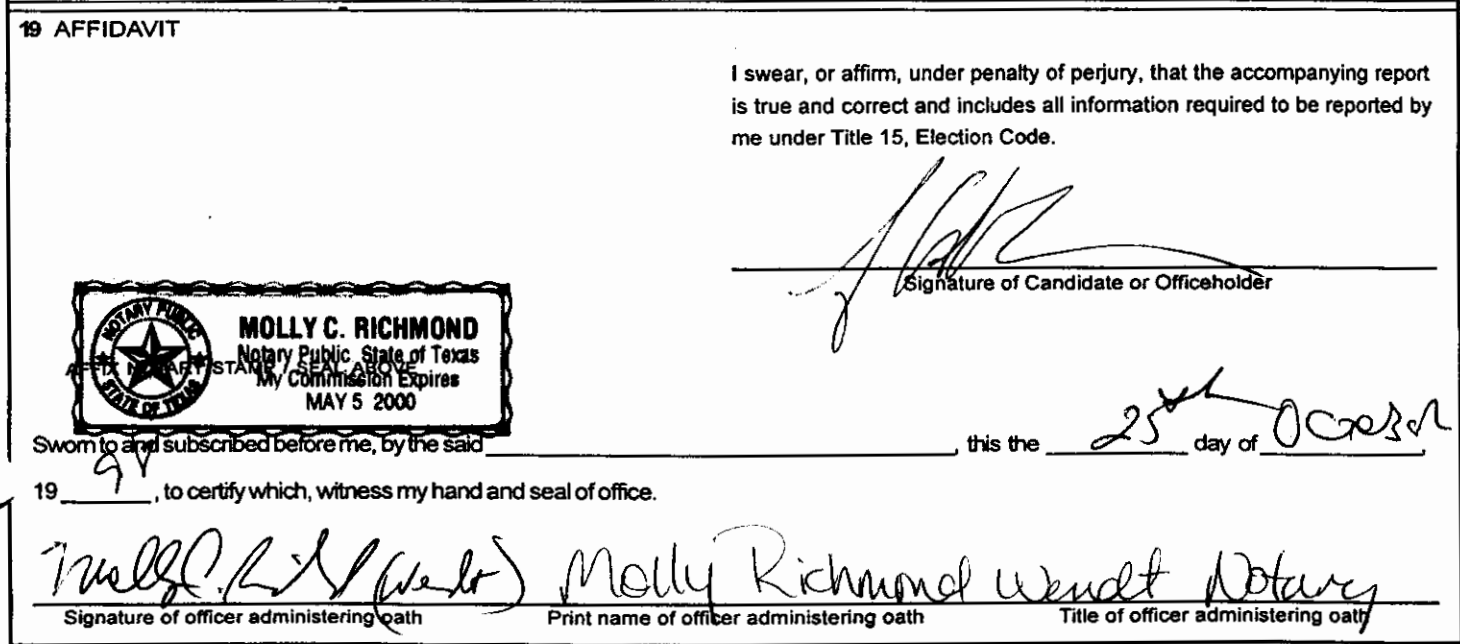 19 AFFIDAVIT
I swear, or affirm, under penalty of perjury, that the accompanying report
is true and correct and includes all information required to be reported by
me under Title 15, Election Code.
Signature of Candidate or Officeholder
NOTARY PUBLIC
STATE OF TEXAS
MOLLY C. RICHMOND
Notary Public, State of Texas
My Commission Expires
MAY 5 2000
AFFIX NOTARY STAMP / SEAL ABOVE
Sworn to and subscribed before me, by the said , this the 25th day of October,
19 , to certify which, witness my hand and seal of office.
Molly C. (Wendt) Molly Richmond Wendt Notary
Signature of officer administering oath Print name of officer administering oath Title of officer administering oath